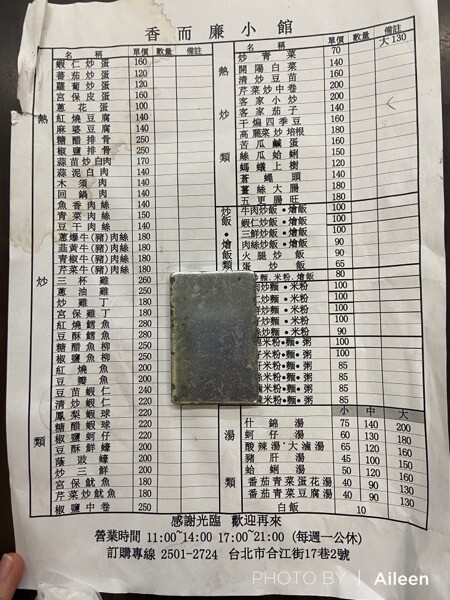 香而廉小館
名稱 單價 數量 備註
蝦仁炒蛋 160
蕃茄炒蛋 120
蘿蔔炒蛋 120
宮保皮蛋 160
蔥花蛋 100
紅燒豆腐 140
麻婆豆腐 140
糖醋排骨 250
椒鹽排骨 250
蒜苗炒白肉 170
蒜泥白肉 160
木須肉 140
回鍋肉 160
魚香肉絲 150
青菜肉絲 140
豆干肉絲 140
蔥爆牛(豬)肉絲 180
韮黃牛(豬)肉絲 180
青椒牛(豬)肉絲 180
芹菜牛(豬)肉絲 180
三杯雞 260
蔥油雞 250
炒雞丁 180
宮保雞丁 180
紅燒鱈魚 280
豆酥鱈魚 280
糖醋魚柳 200
椒鹽魚柳 200
紅燒魚 200
豆瓣魚 200
豆苗蝦仁 240
清炒蝦仁 220
鳳梨蝦球 220
糖醋蝦球 220
椒鹽蚵仔 200
豆酥鮮蠔 200
蔭豉蠔 200
炒三鮮 200
宮保魷魚 180
芹菜炒魷魚 180
椒鹽中卷 250
熱炒類
名稱 單價 數量 備註
炒青菜 70 大130
開陽白菜 140
清炒豆苗 180
芹菜炒中卷 200
客家小炒 200
客家茄子 140
干煸四季豆 160
高麗菜炒培根 180
苦瓜鹹蛋 160
絲瓜蛤蜊 180
螞蟻上樹 140
蒼蠅頭 140
薑絲大腸 180
五更腸旺 180
熱炒類
牛肉炒飯•燴飯 100
蝦仁炒飯•燴飯 100
三鮮炒飯•燴飯 100
肉絲炒飯•燴飯 90
火腿炒飯 90
蛋炒飯 65
炒飯•燴飯類
炒麵.米粉.燴飯 80
炒麵•米粉 100
炒麵•米粉 100
炒麵•米粉 100
米粉 90
米粉•麵•粥 100
米粉•麵•粥 100
米粉•麵•粥 85
米粉•麵•粥 85
米粉•麵•粥 85
小 中 大
什錦湯 75 140 200
蚵仔湯 60 130 180
酸辣湯•大滷湯 65 120 160
豬肝湯 45 90 160
蛤蜊湯 50 120 160
蕃茄青菜蛋花湯 40 90 130
蕃茄青菜豆腐湯 40 90 130
白飯 10
湯類
感謝光臨 歡迎再來
營業時間 11:00~14:00 17:00~21:00 (每週一公休)
訂購專線 2501-2724 台北市合江街17巷2號
PHOTO BY | Aileen